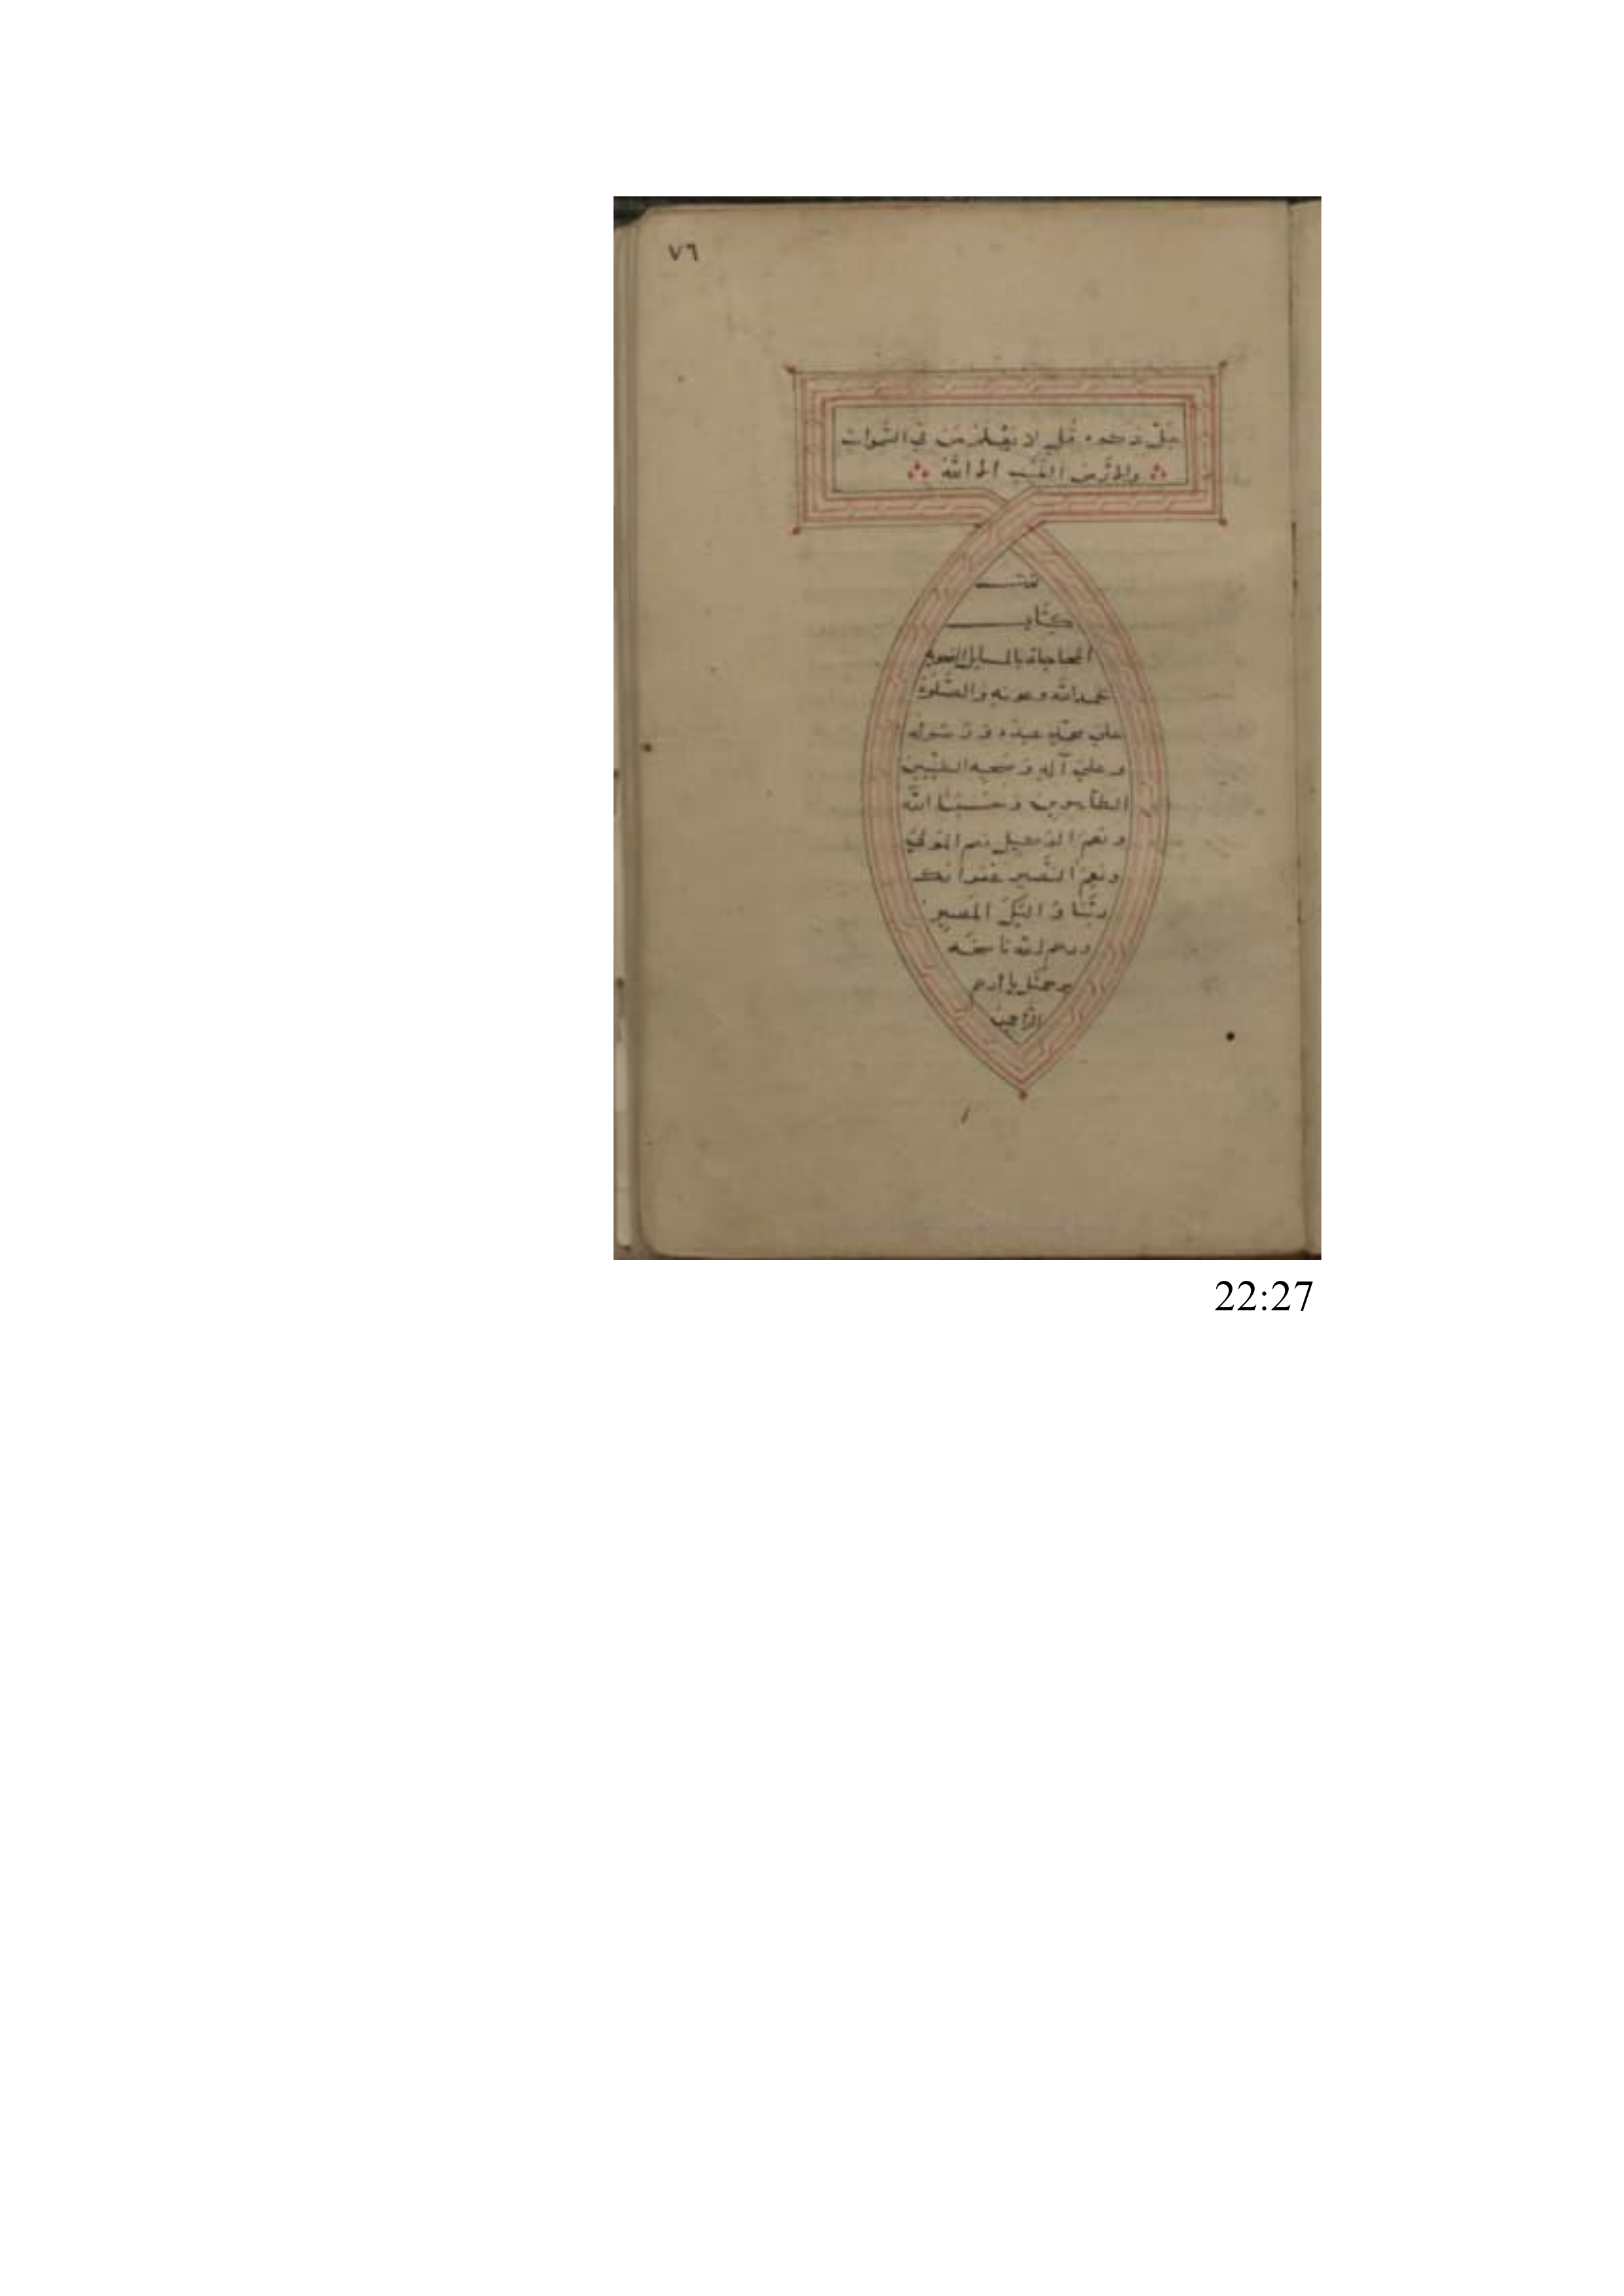 ٧٦
جل ذكره قل لا يعلم من في السموات
والارض الغيب الا الله
تمت
كتاب
المحاجات بالمسايل النحوية
بحمد الله وعونه والصلوة
على محمد عبده ورسوله
وعلى آله وصحبه الطيبين
الطاهرين وحسبنا الله
ونعم الوكيل نعم المولى
ونعم النصير غفرانك
ربنا واليك المصير
ورحم الله ناسخه
برحمتك يا ارحم
الراحمين
22:27